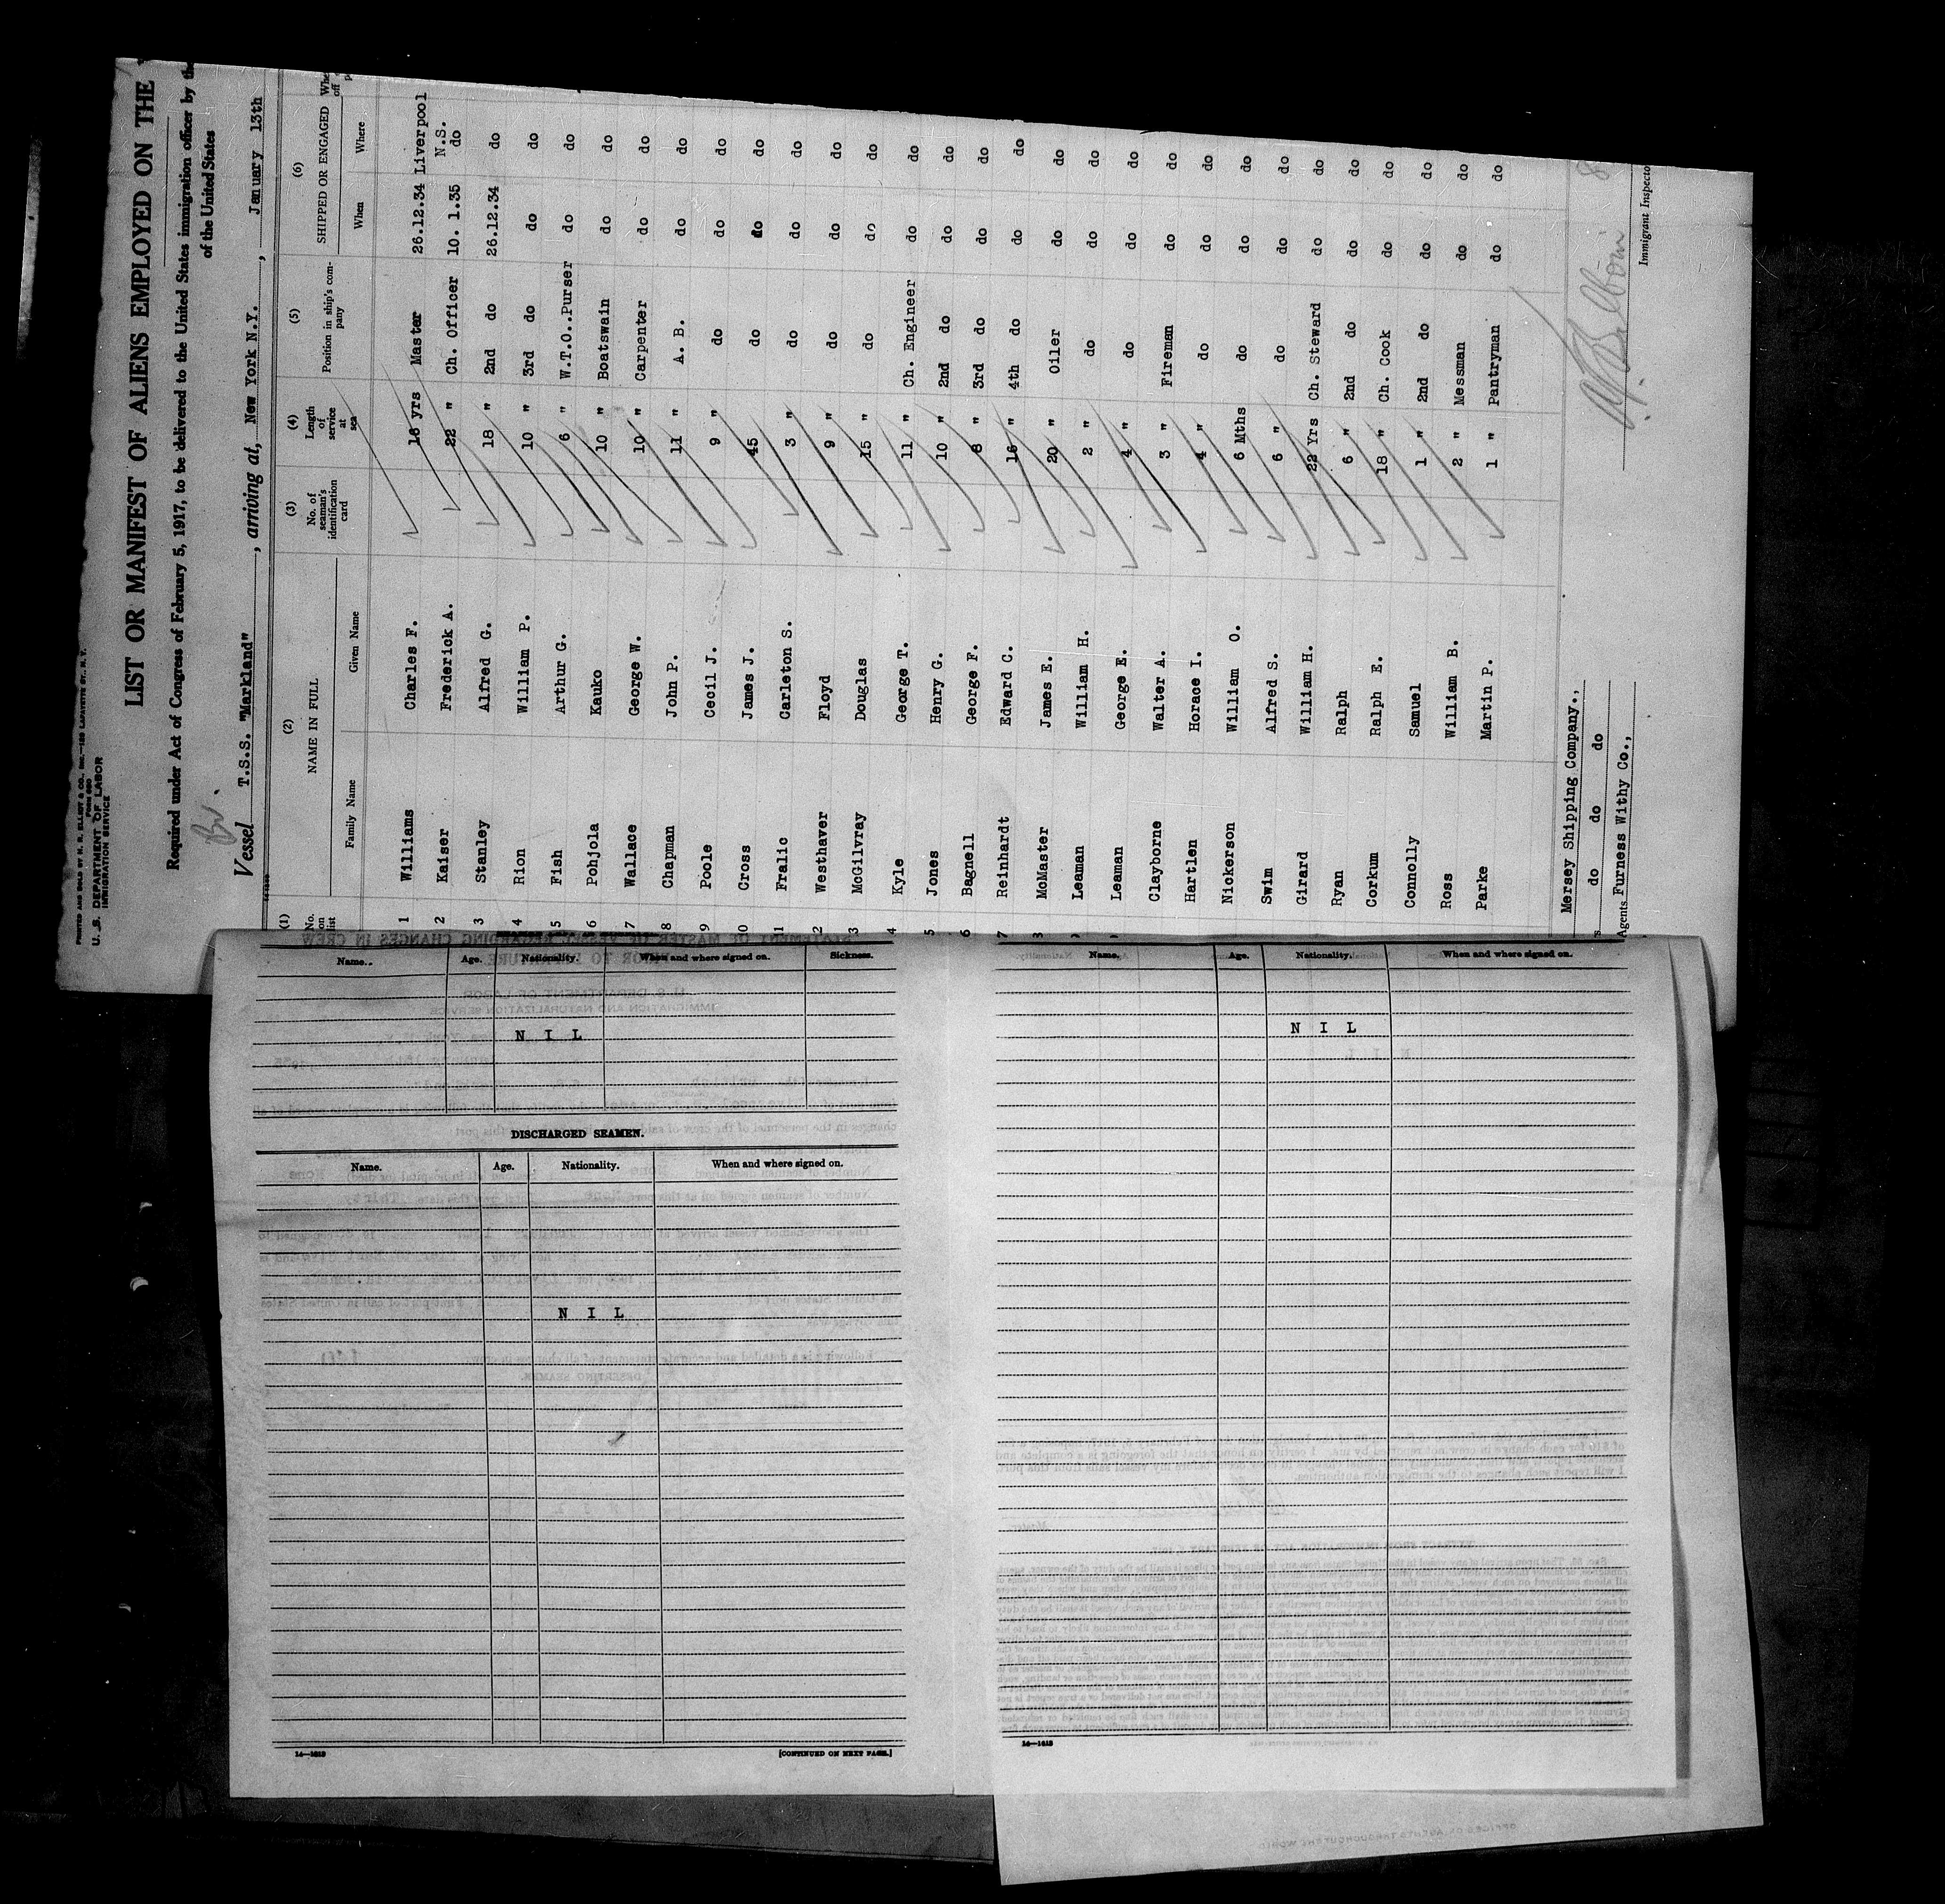 PRINTED AND SOLD BY M. R. ELLIOT & CO., INC.—120 LAFAYETTE ST., N. Y.
FORM 680
U. S. DEPARTMENT OF LABOR
IMMIGRATION SERVICE
LIST OR MANIFEST OF ALIENS EMPLOYED ON THE
Required under Act of Congress of February 5, 1917, to be delivered to the United States immigration officer by the
of the United States
Vessel T.S.S. "Markland", arriving at, New York N.Y., January 13th
(1) (2) (3) (4) (5) (6)
No. on list NAME IN FULL No. of seaman's identification card Length of service at sea Position in ship's company SHIPPED OR ENGAGED
Family Name Given Name When Where
1 Williams Charles F. 16 yrs Master 26.12.34 Liverpool
N.S.
2 Kaiser Frederick A. 22 " Ch. Officer 10. 1.35 do
3 Stanley Alfred G. 18 " 2nd do 26.12.34 do
4 Rion William P. 10 " 3rd do do do
5 Fish Arthur G. 6 " W.T.O..Purser do do
6 Pohjola Kauko 10 " Boatswain do do
7 Wallace George W. 10 " Carpenter do do
8 Chapman John P. 11 " A. B. do do
9 Poole Cecil J. 9 " do do do
0 Cross James J. 45 do do do
1 Fralic Carleton S. 3 " do do do
2 Westhaver Floyd 9 " do do do
3 McGilvray Douglas 15 " do do do
4 Kyle George T. 11 " Ch. Engineer do do
5 Jones Henry G. 10 " 2nd do do do
6 Bagnell George F. 8 " 3rd do do do
7 Reinhardt Edward C. 16 " 4th do do do
8 McMaster James E. 20 " Oiler do do
Leaman William H. 2 " do do do
Leaman George E. 4 " do do do
Clayborne Walter A. 3 " Fireman do do
Hartlen Horace I. 4 " do do do
Nickerson William O. 6 Mths do do do
Swim Alfred S. 6 " do do do
Girard William H. 22 Yrs Ch. Steward do do
Ryan Ralph 6 " 2nd do do do
Corkum Ralph E. 18 " Ch. Cook do do
Connolly Samuel 1 " 2nd do do do
Ross William B. 2 " Messman do do
Parke Martin P. 1 " Pantryman do do
Mersey Shipping Company.,
do do do
Agents Furness Withy Co.,
Immigrant Inspecto
Name. Age. Nationality. When and where signed on. Sickness.
N I L
DISCHARGED SEAMEN.
Name. Age. Nationality. When and where signed on.
N I L
14—1613 [CONTINUED ON NEXT PAGE.]
Name. Age. Nationality. When and where signed on.
N I L
14—1613